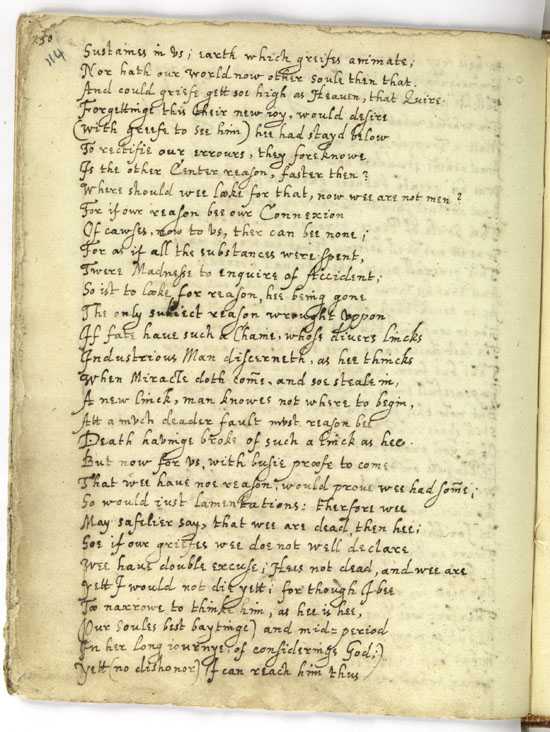 50
114
Sustaines in vs; earth which greifes animate;
Nor hath our world now other Soule then that.
And could griefe gett soe high as Heaven, that Quire
Forgettinge this their new ioy, would desire
(With greefe to see him) hee had stayd below
To rectifie our errours, they foreknowe
Is the other Center reason, faster then?
Where should wee looke for that, now wee are not men?
For if our reason bee our Connexion
Of cawses, now to vs, ther can bee none;
For as if all the substances were spent,
Twere Madnesse to enquire of Accident;
So ist to looke for reason, hee being gone
The only subiect reason wrought vppon
If fate have such a Chaine, whose divers lincks
Industrious Man discerneth, as hee thincks
When Miracle doth come, and soe steale in,
A new linck, man knowes not where to begin,
Att a much deader fault must reason bee
Death havinge broke of such a linck as hee.
But now for vs, with busie proofe to come
That wee have noe reason, would prove wee had some;
So would iust lamentations: therfore wee
May safelier say, that wee are dead, then hee;
Soe if our griefes wee doe not well declare
Wee have double excuse; Hees not dead, and wee are
Yett I would not die yett; for though I bee
Too narrowe to thinke him, as hee is hee,
(Our Soules best baytinge) and mid-period
In her long iournye, of consideringe God;)
Yett (no dishonor) I can reach him thus